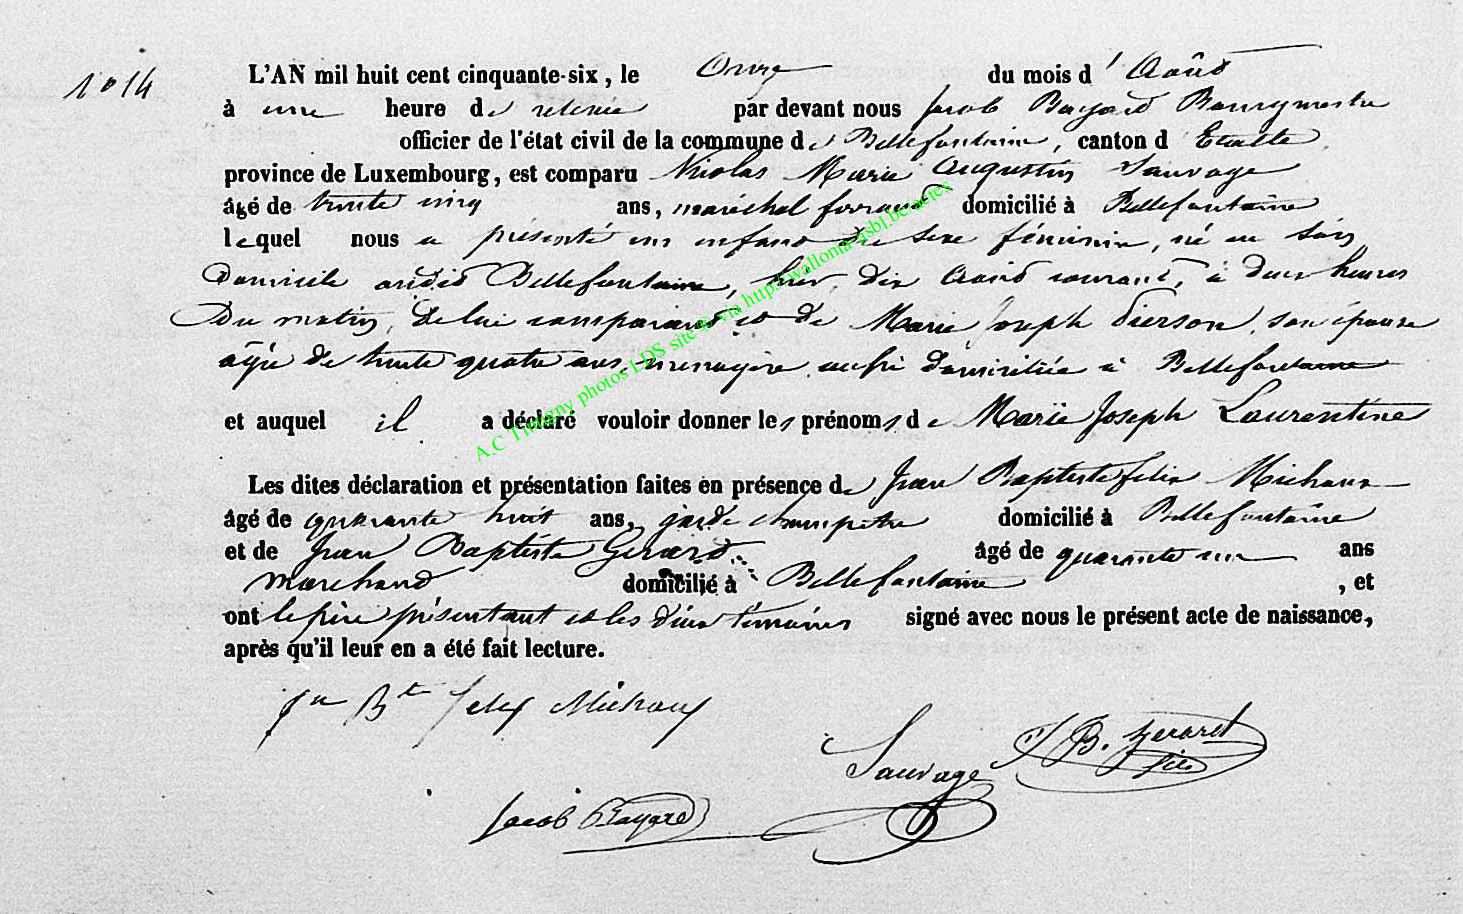 N° 14
L'AN mil huit cent cinquante-six, le Onze du mois d'Août
à une heure de relevée par devant nous Jacob Bayard Bourgmestre
officier de l'état civil de la commune de Bellefontaine, canton d'Etalle,
province de Luxembourg, est comparu Nicolas Marie Augustin Sauvage
âgé de trente cinq ans, maréchal ferrand domicilié à Bellefontaine
lequel nous a présenté un enfant de sexe féminin, né en son
Domicile audit Bellefontaine, hier, dix Août courant, à deux heures
Du matin, de lui comparant et de Marie Joseph Pierson, son épouse
âgée de trente quatre ans, ménagère aussi domiciliée à Bellefontaine
et auquel il a déclaré vouloir donner les prénoms de Marie Joseph Laurentine
Les dites déclaration et présentation faites en présence de Jean Baptiste felix Michaux
âgé de quarante huit ans, garde champetre domicilié à Bellefontaine
et de Jean Baptiste Gérard âgé de quarante un ans
marchand domicilié à Bellefontaine, et
ont le père présentant et les deux témoins signé avec nous le présent acte de naissance,
après qu'il leur en a été fait lecture.
Jn Bte felix Michaux
Sauvage
J B. Gerard
fils
Jacob Bayard
A.C Tintigny photos LDS site © via http://wallonia-asbl.be/actes